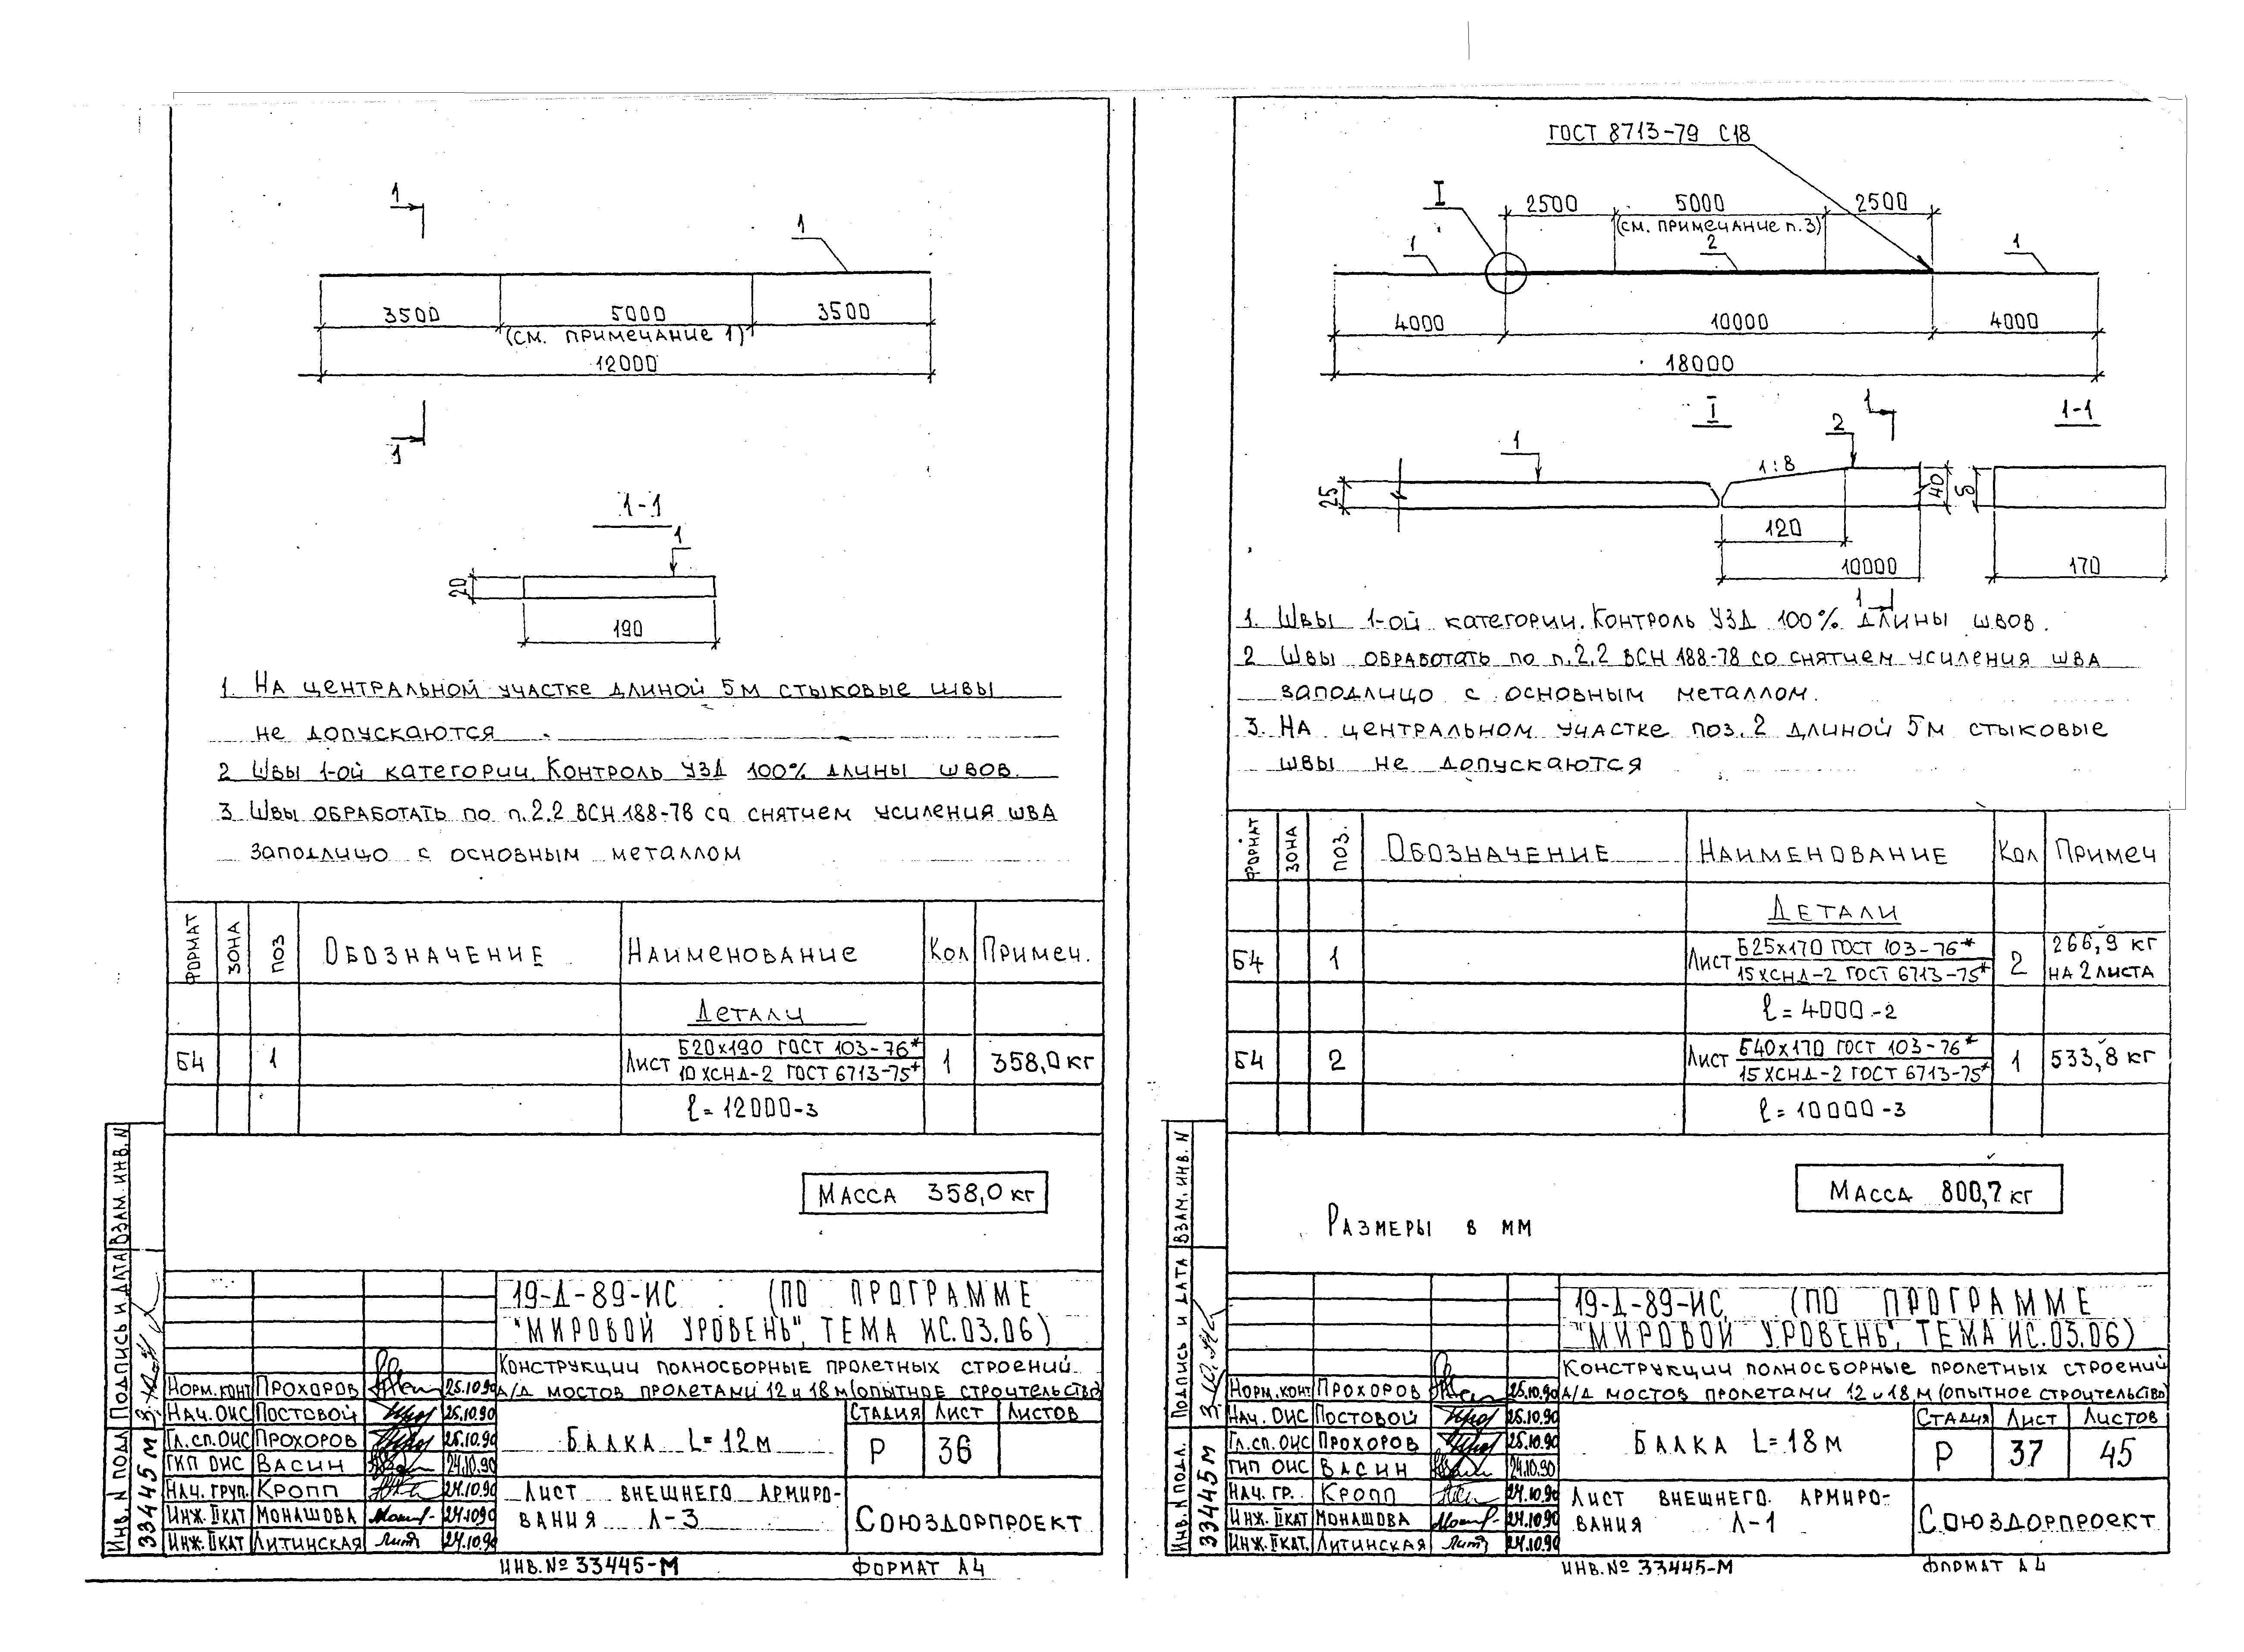 1
1
3500
5000
3500
(см. примечание 1)
12000
1
1-1
1
20
190
1. На центральном участке длиной 5м стыковые швы
не допускаются
2 Швы 1-ой категории. Контроль УЗД 100% длины швов.
3 Швы обработать по п.2.2 ВСН 188-78 со снятием усиления шва
заподлицо с основным металлом
Формат Зона Поз Обозначение Наименование Кол Примеч.
Детали
Б4 1 Лист Б20х190 ГОСТ 103-76* 1 358,0 кг
10ХСНД-2 ГОСТ 6713-75*
ℓ=12000-3
Масса 358,0 кг
19-Д-89-ИС (по программе
"Мировой уровень", тема ИС.03.06)
Конструкции полносборные пролетных строений
а/д мостов пролетами 12 и 18 м (опытное строительство)
Норм.конт Прохоров 25.10.90
Нач. ОИС Постовой 25.10.90
Гл.сп.ОИС Прохоров 25.10.90
ГИП ОИС Васин 24.10.90
Нач. груп. Кропп 24.10.90
Инж. IIкат Монашова 24.10.90
Инж. IIкат Литинская 24.10.90
Балка L=12м
Стадия Лист Листов
Р 36
Лист внешнего армиро-
вания Л-3
Союздорпроект
Взам. инв. N
Подпись и дата
Инв. N подл
33445м
Инв.№ 33445-М Формат А4
ГОСТ 8713-79 С18
I
2500
5000
2500
(см. примечание п.3)
1
2
1
4000
10000
4000
18000
I
1
1-1
1
2
1:8
25
40
120
10000
170
1
1. Швы 1-ой категории. Контроль УЗД 100% длины швов.
2 Швы обработать по п.2.2 ВСН 188-78 со снятием усиления шва
заподлицо с основным металлом.
3. На центральном участке поз.2 длиной 5м стыковые
швы не допускаются
Формат Зона Поз. Обозначение Наименование Кол Примеч
Детали
Б4 1 Лист Б25х170 ГОСТ 103-76* 2 266,9 кг
15ХСНД-2 ГОСТ 6713-75* на 2 листа
ℓ=4000-2
Б4 2 Лист Б40х170 ГОСТ 103-76* 1 533,8 кг
15ХСНД-2 ГОСТ 6713-75*
ℓ=10000-3
Масса 800,7 кг
Размеры в мм
19-Д-89-ИС (по программе
"Мировой уровень", тема ИС.03.06)
Конструкции полносборные пролетных строений
а/д мостов пролетами 12 и 18 м (опытное строительство)
Норм.конт Прохоров 25.10.90
Нач. ОИС Постовой 25.10.90
Гл.сп.ОИС Прохоров 25.10.90
ГИП ОИС Васин 24.10.90
Нач. гр. Кропп 24.10.90
Инж. IIкат Монашова 24.10.90
Инж. IIкат. Литинская 24.10.90
Балка L=18м
Стадия Лист Листов
Р 37 45
Лист внешнего армиро-
вания Л-1
Союздорпроект
Взам. инв. N
Подпись и дата
Инв. N подл.
33445м
Инв.№ 33445-М Формат А4